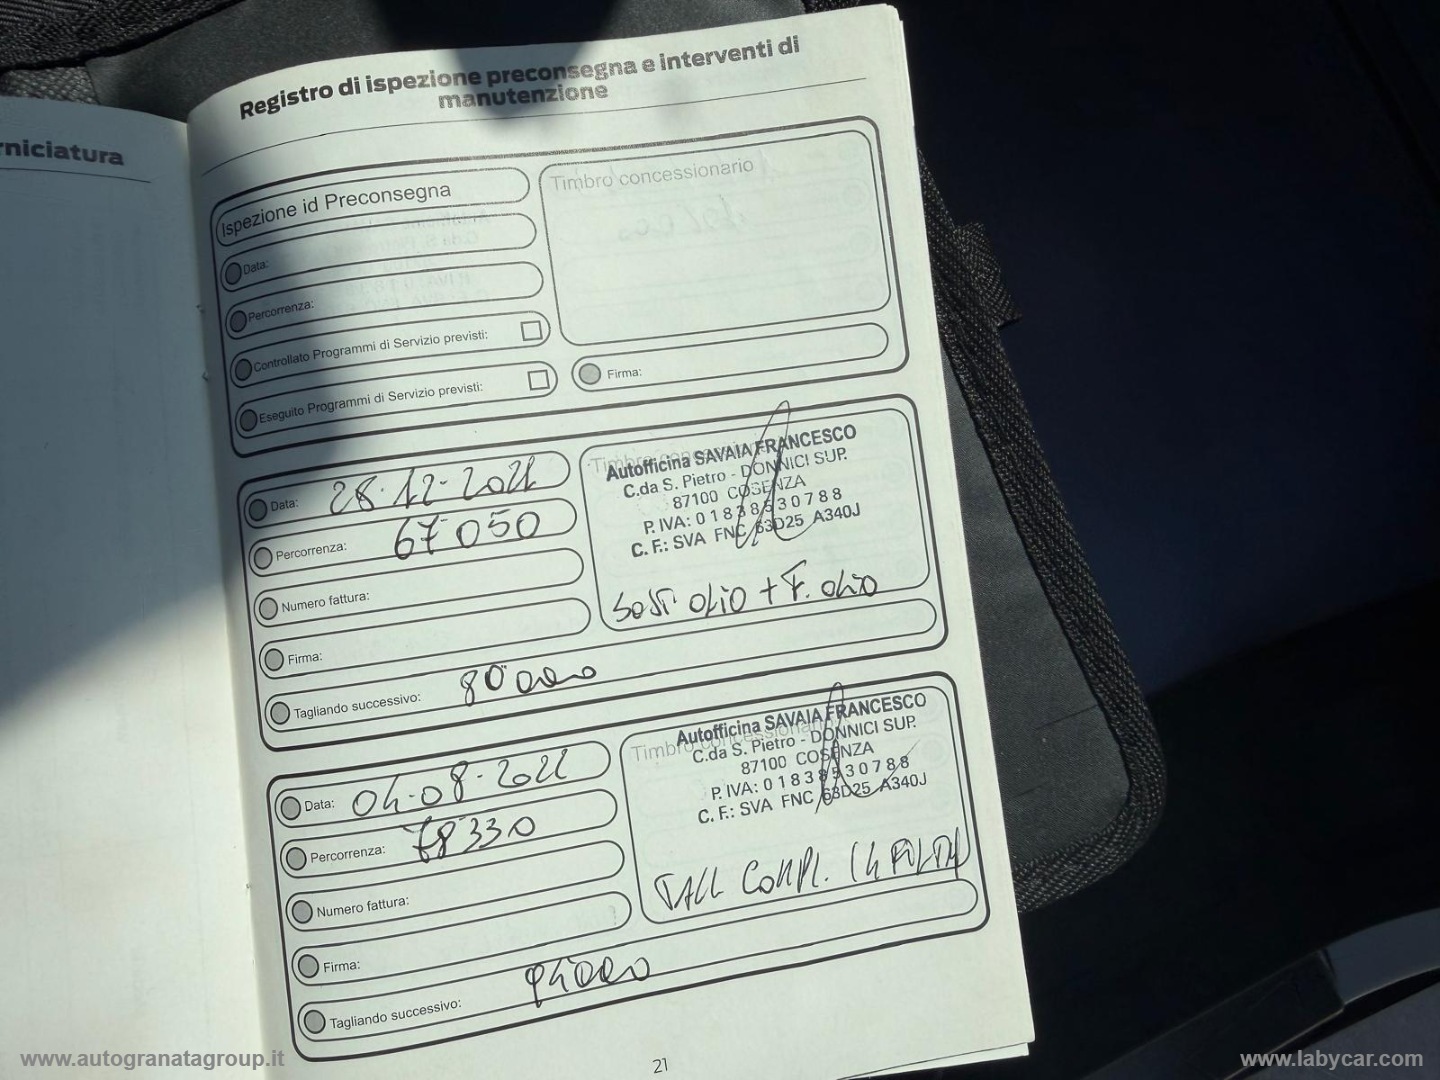 rniciatura
Registro di ispezione preconsegna e interventi di
manutenzione
Ispezione id Preconsegna
Data:
Percorrenza:
Controllato Programmi di Servizio previsti:
Eseguito Programmi di Servizio previsti:
Timbro concessionario
Firma:
Data: 28-12-2021
Percorrenza: 67050
Numero fattura:
Firma:
Tagliando successivo: 80000
Timbro concessionario
Autofficina SAVAIA FRANCESCO
C.da S. Pietro - DONNICI SUP.
87100 COSENZA
P. IVA: 01838530788
C. F.: SVA FNC 63D25 A340J
Sost olio + F. olio
Data: 04-08-2022
Percorrenza: 78330
Numero fattura:
Firma:
Tagliando successivo:
Timbro concessionario
Autofficina SAVAIA FRANCESCO
C.da S. Pietro - DONNICI SUP.
87100 COSENZA
P. IVA: 01838530788
C. F.: SVA FNC 63D25 A340J
TAGL COMPL.
21
www.autogranatagroup.it
www.labycar.com